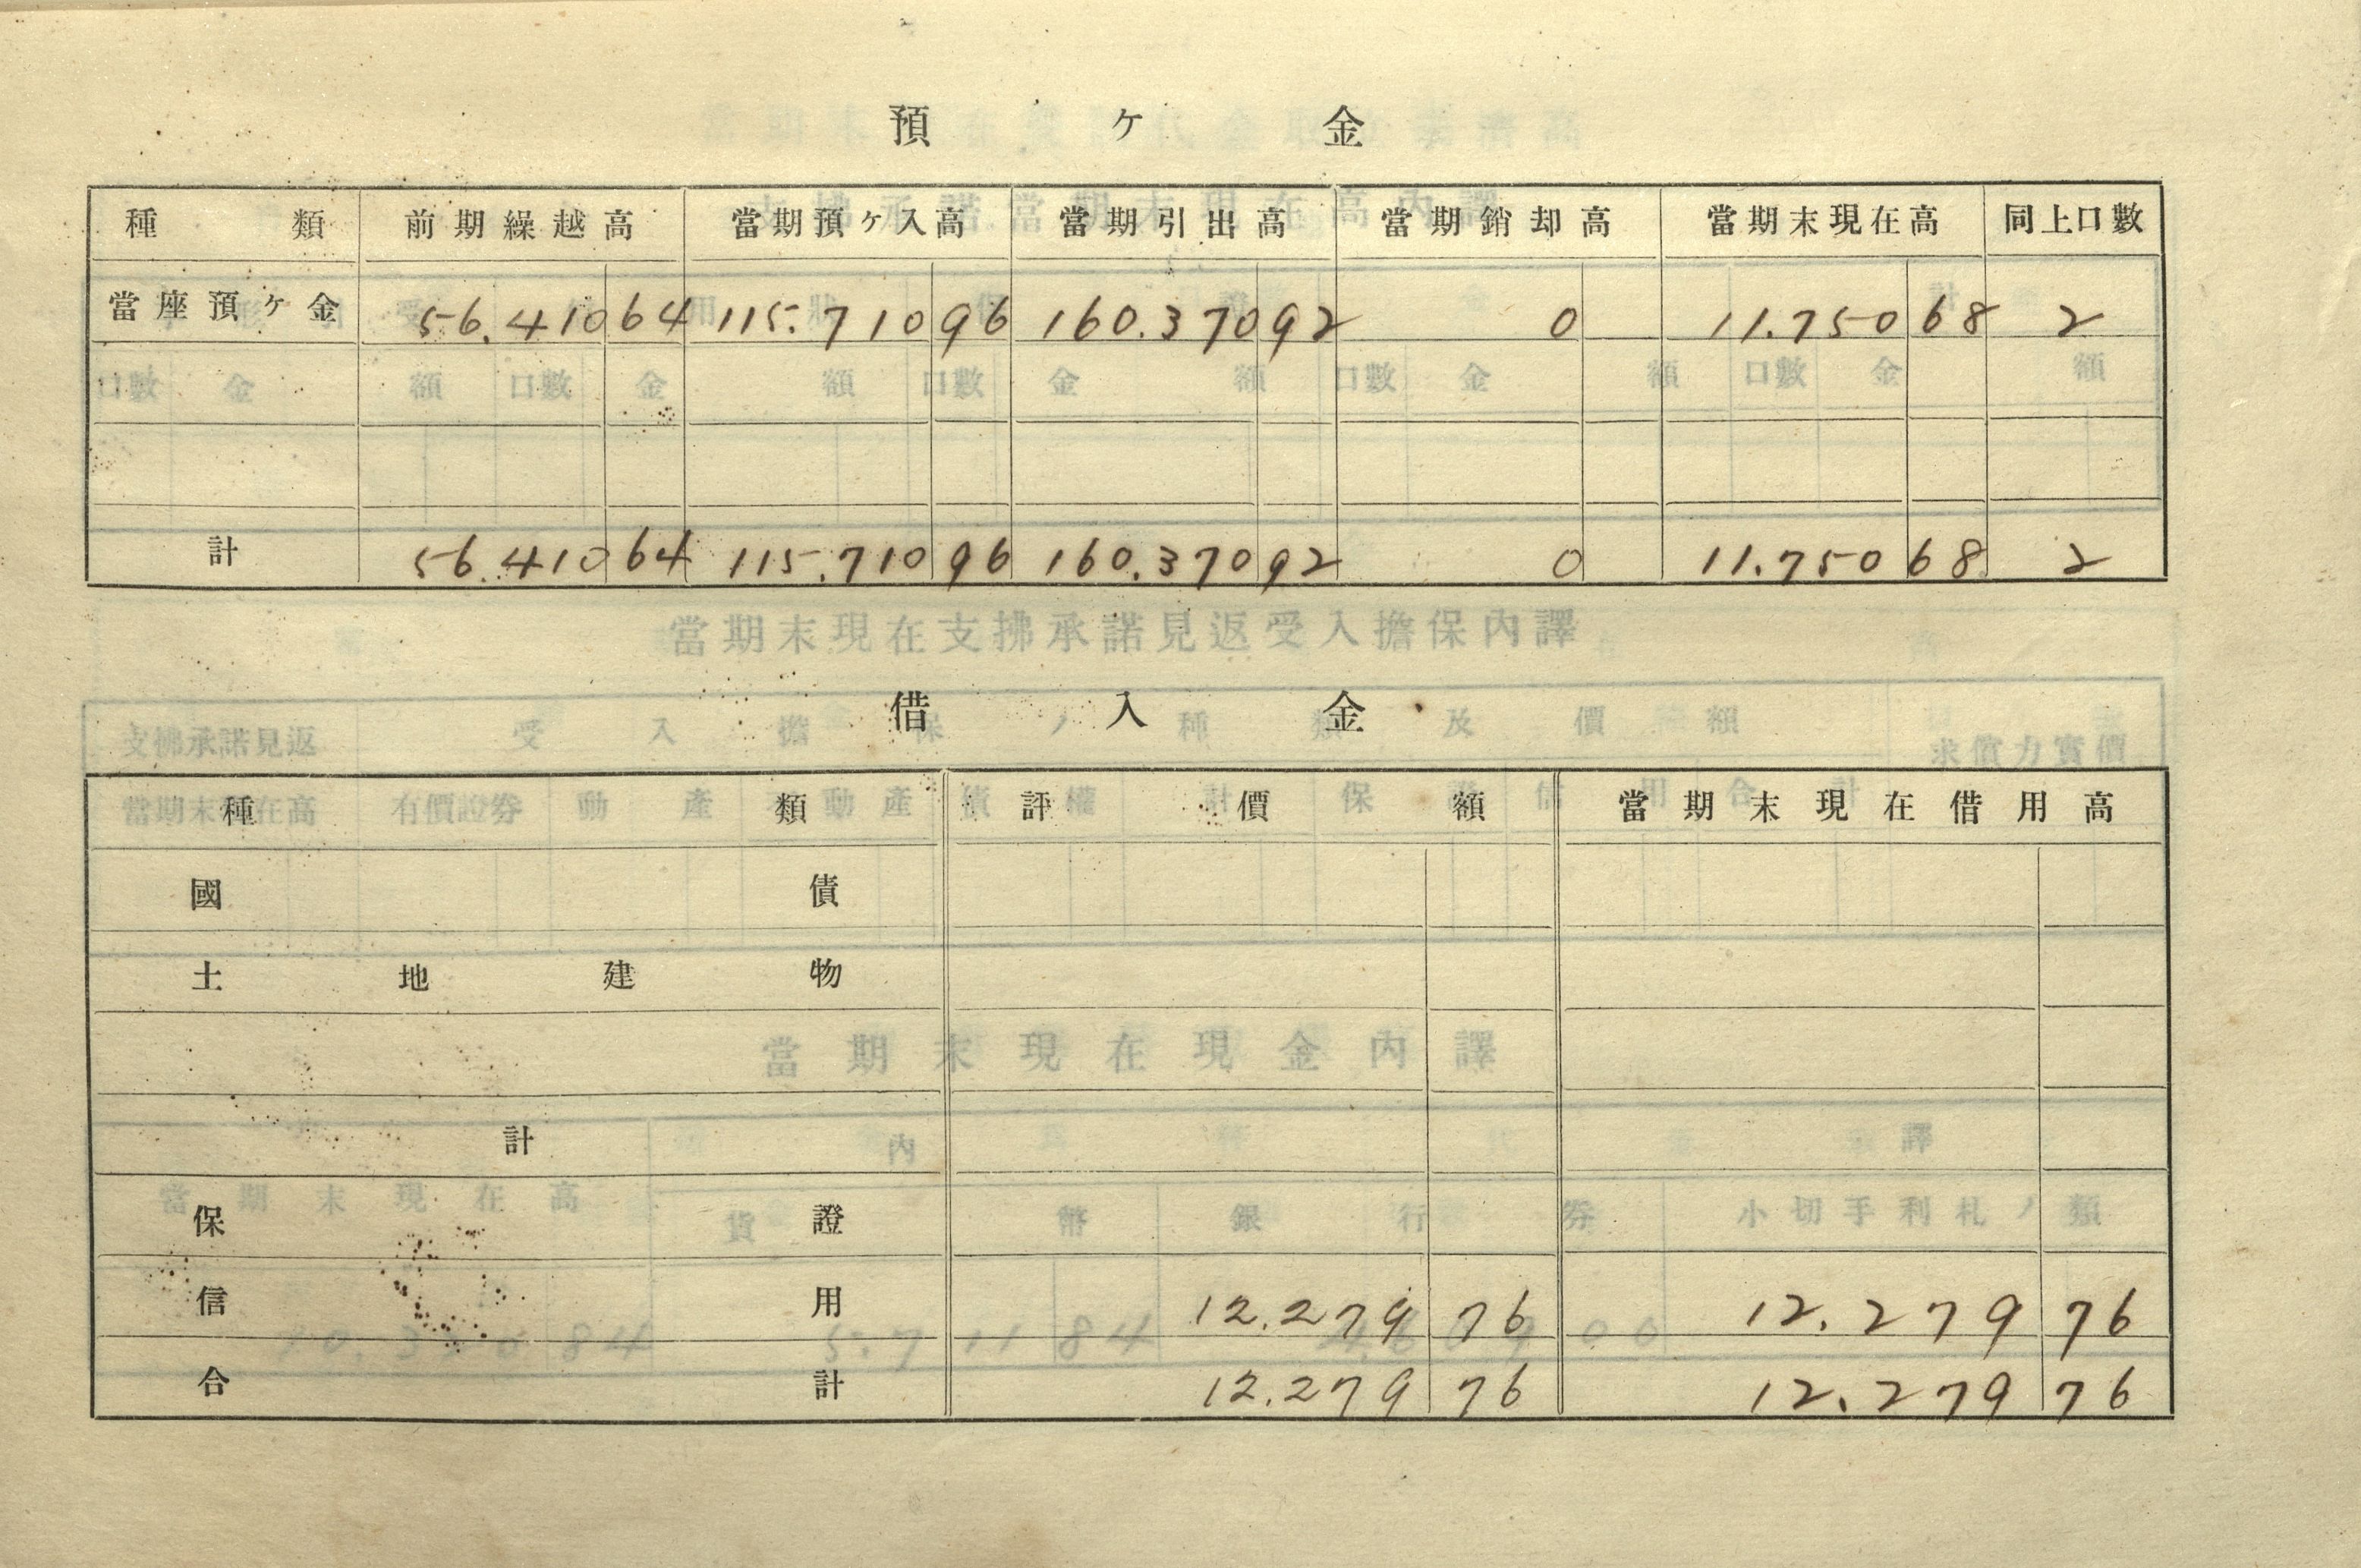 預ケ金
種類 前期繰越高 當期預ケ入高 當期引出高 當期銷却高 當期末現在高 同上口數
當座預ケ金 56.410 64 115.710 96 160.370 92 0 11.750 68 2
計 56.410 64 115.710 96 160.370 92 0 11.750 68 2
借入金
種類 評價額 當期末現在借用高
國債
土地建物
計
保證
信用 12.279 76 12.279 76
合計 12.279 76 12.279 76